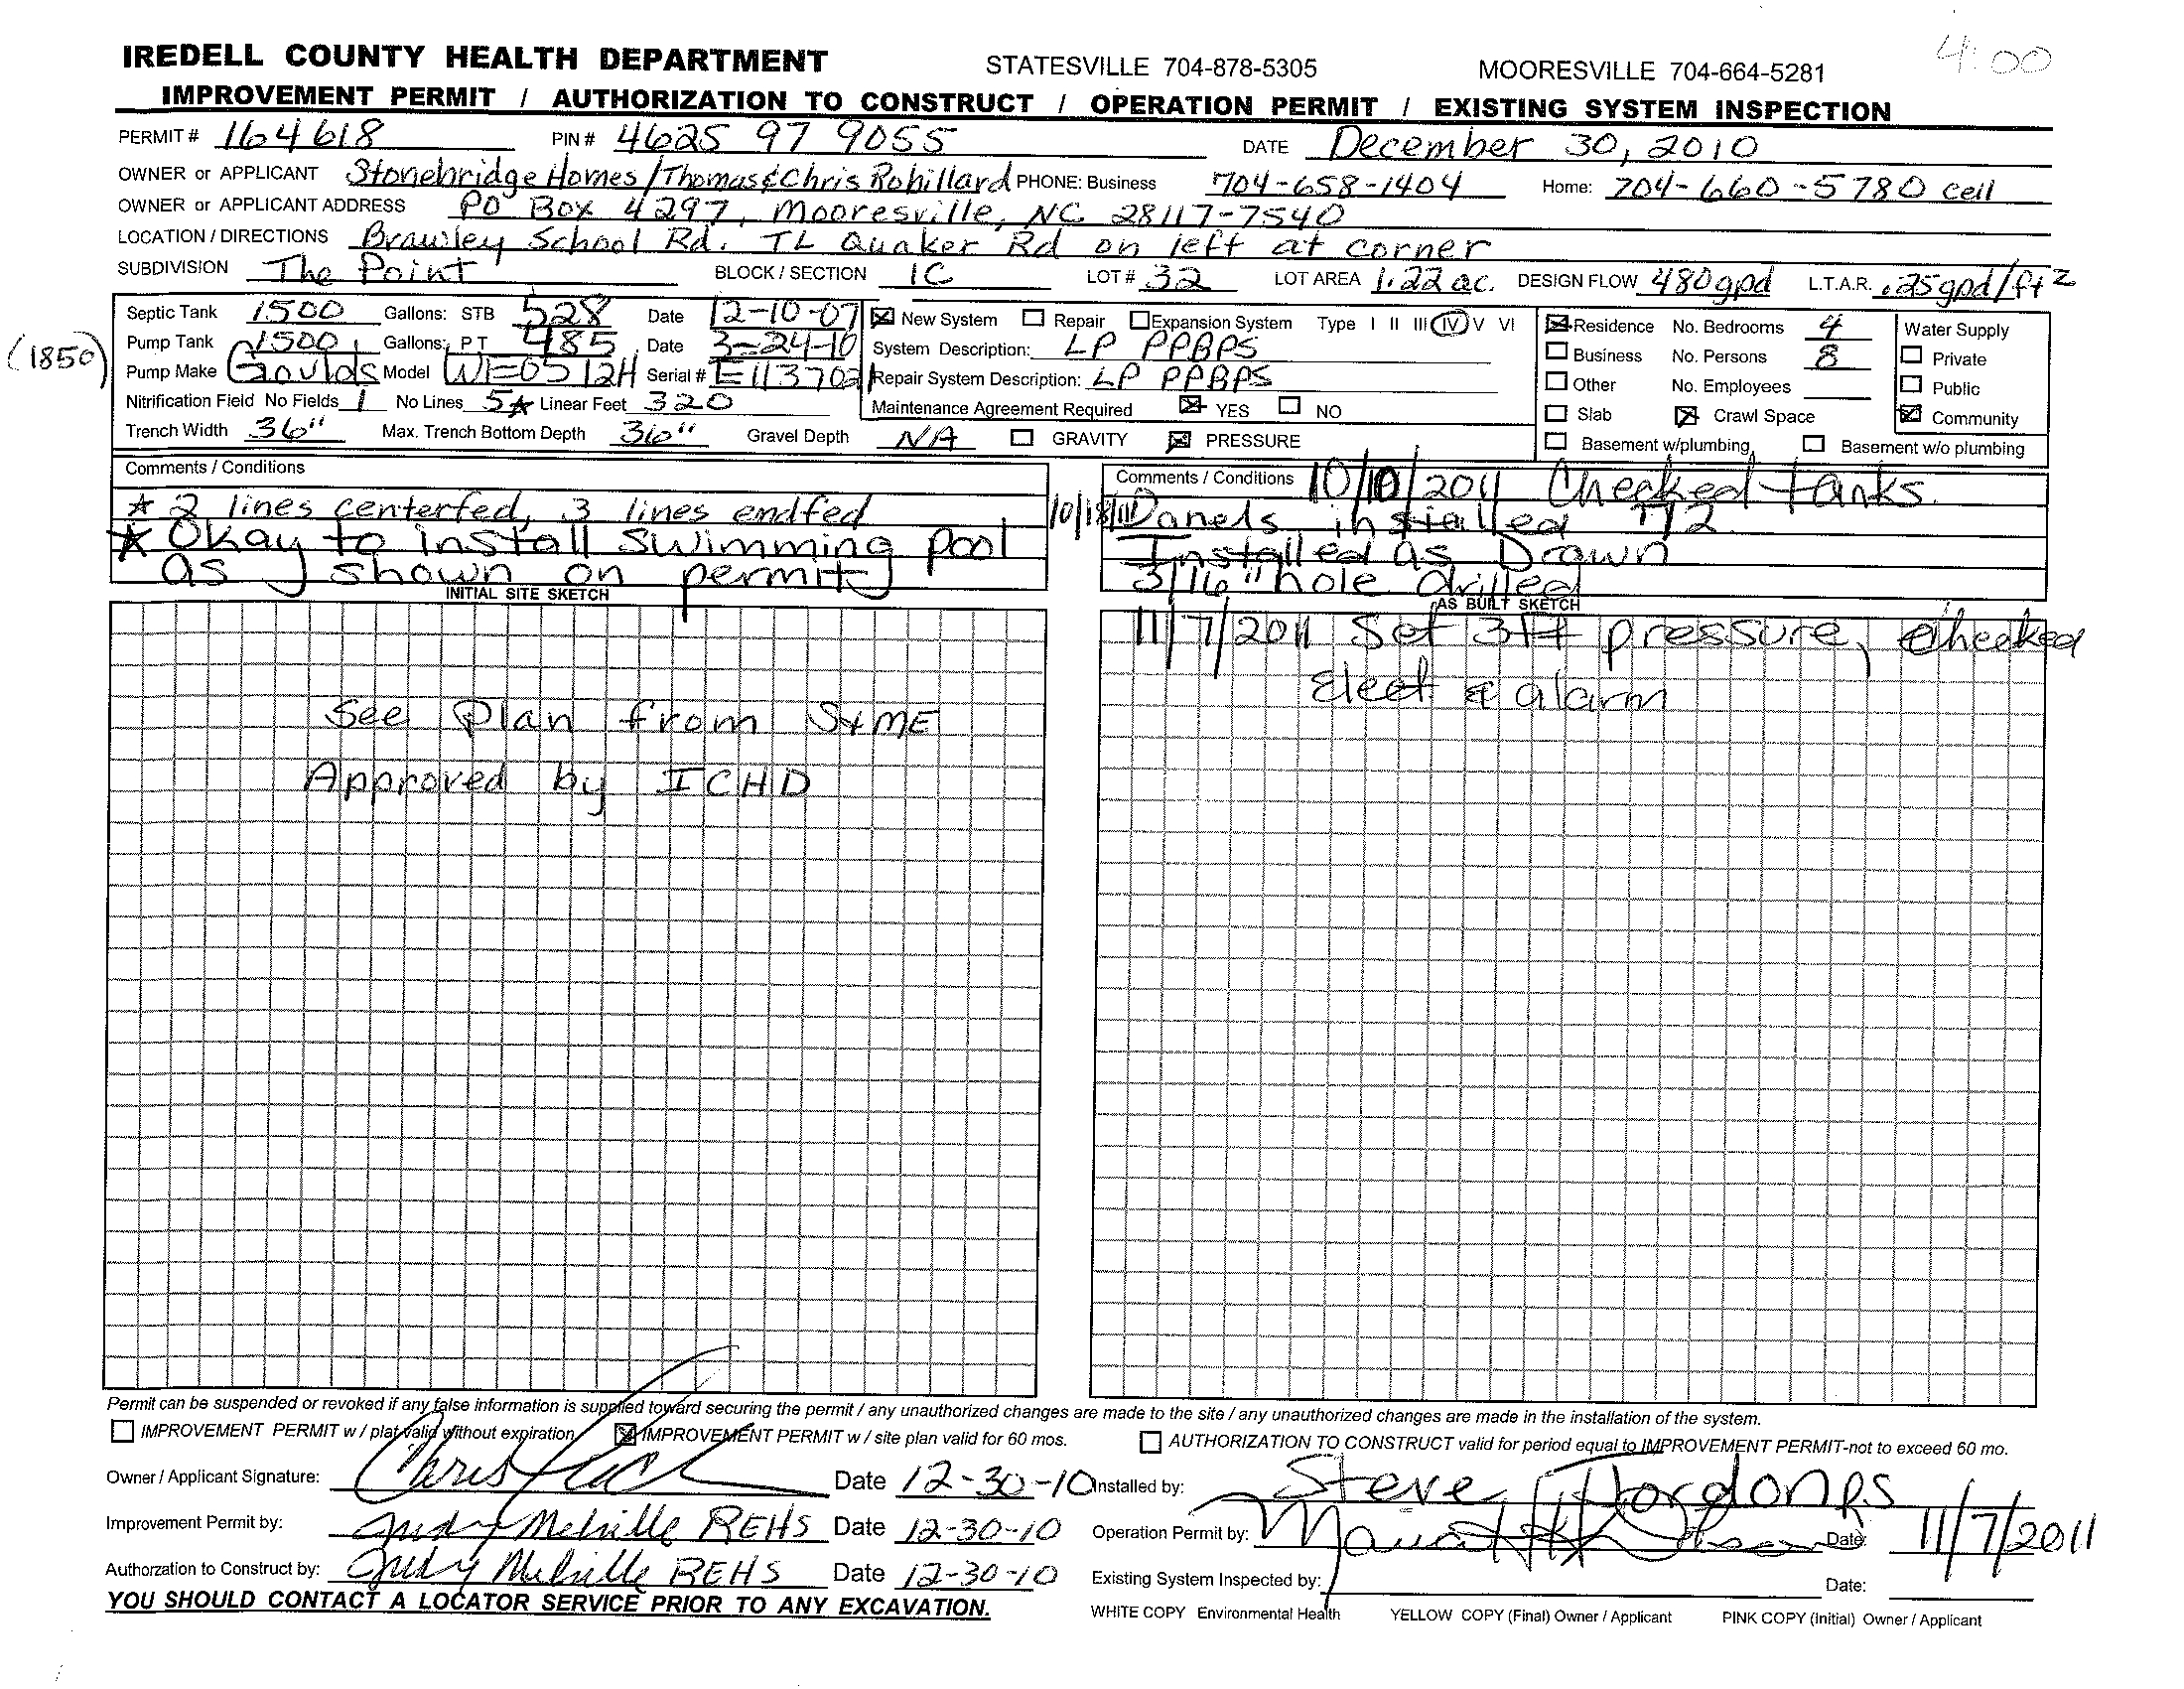 4:00
IREDELL COUNTY HEALTH DEPARTMENT STATESVILLE 704-878-5305 MOORESVILLE 704-664-5281
IMPROVEMENT PERMIT / AUTHORIZATION TO CONSTRUCT / OPERATION PERMIT / EXISTING SYSTEM INSPECTION
PERMIT # 164618 PIN # 4625 97 9055 DATE December 30, 2010
OWNER or APPLICANT Stonebridge Homes/Thomas & Chris Robillard PHONE: Business 704-658-1404 Home: 704-660-5780 cell
OWNER or APPLICANT ADDRESS PO Box 4297, Mooresville, NC 28117-7540
LOCATION / DIRECTIONS Brawley School Rd. TL Quaker Rd on left at corner
SUBDIVISION The Point BLOCK / SECTION 1C LOT # 32 LOT AREA 1.22 ac. DESIGN FLOW 480gpd L.T.A.R. .25gpd/ft2
Septic Tank 1500 Gallons: STB 528 Date 12-10-07 New System Repair Expansion System Type I II III IV V VI Residence No. Bedrooms 4 Water Supply
(1850) Pump Tank 1500 Gallons: PT 485 Date 3-24-10 System Description: LP PPBPS Business No. Persons 8 Private
Pump Make Goulds Model WE0512H Serial # E113702 Repair System Description: LP PPBPS Other No. Employees Public
Nitrification Field No Fields 1 No Lines 5* Linear Feet 320 Maintenance Agreement Required YES NO Slab Crawl Space Community
Trench Width 36" Max. Trench Bottom Depth 36" Gravel Depth NA GRAVITY PRESSURE Basement w/plumbing Basement w/o plumbing
Comments / Conditions
* 2 lines centerfed, 3 lines endfed
* Okay to install swimming pool
as shown on permit
INITIAL SITE SKETCH
See Plan from S&ME
Approved by ICHD
Comments / Conditions 10/10/2011 Checked tanks.
10/18/11 Panels installed T12
Installed as Drawn
3/16" hole drilled
AS BUILT SKETCH
11/7/2011 Set 3ft pressure, checked
elect & alarm
Permit can be suspended or revoked if any false information is supplied toward securing the permit / any unauthorized changes are made to the site / any unauthorized changes are made in the installation of the system.
IMPROVEMENT PERMIT w / plat valid without expiration IMPROVEMENT PERMIT w / site plan valid for 60 mos. AUTHORIZATION TO CONSTRUCT valid for period equal to IMPROVEMENT PERMIT-not to exceed 60 mo.
Owner / Applicant Signature: Chris Date 12-30-10 Installed by: Steve
Improvement Permit by: Judy Melville REHS Date 12-30-10 Operation Permit by: Date: 11/7/2011
Authorzation to Construct by: Judy Melville REHS Date 12-30-10 Existing System Inspected by: Date:
YOU SHOULD CONTACT A LOCATOR SERVICE PRIOR TO ANY EXCAVATION.
WHITE COPY Environmental Health YELLOW COPY (Final) Owner / Applicant PINK COPY (Initial) Owner / Applicant